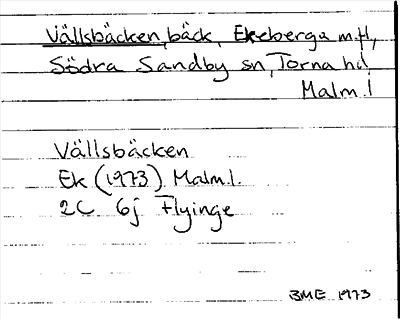 Vällsbäcken, bäck, Ekeberga m fl,
Södra Sandby sn, Torna hd,
Malm. l
Vällsbäcken
Ek (1973) Malm. l.
2C 6j Flyinge
BME 1973